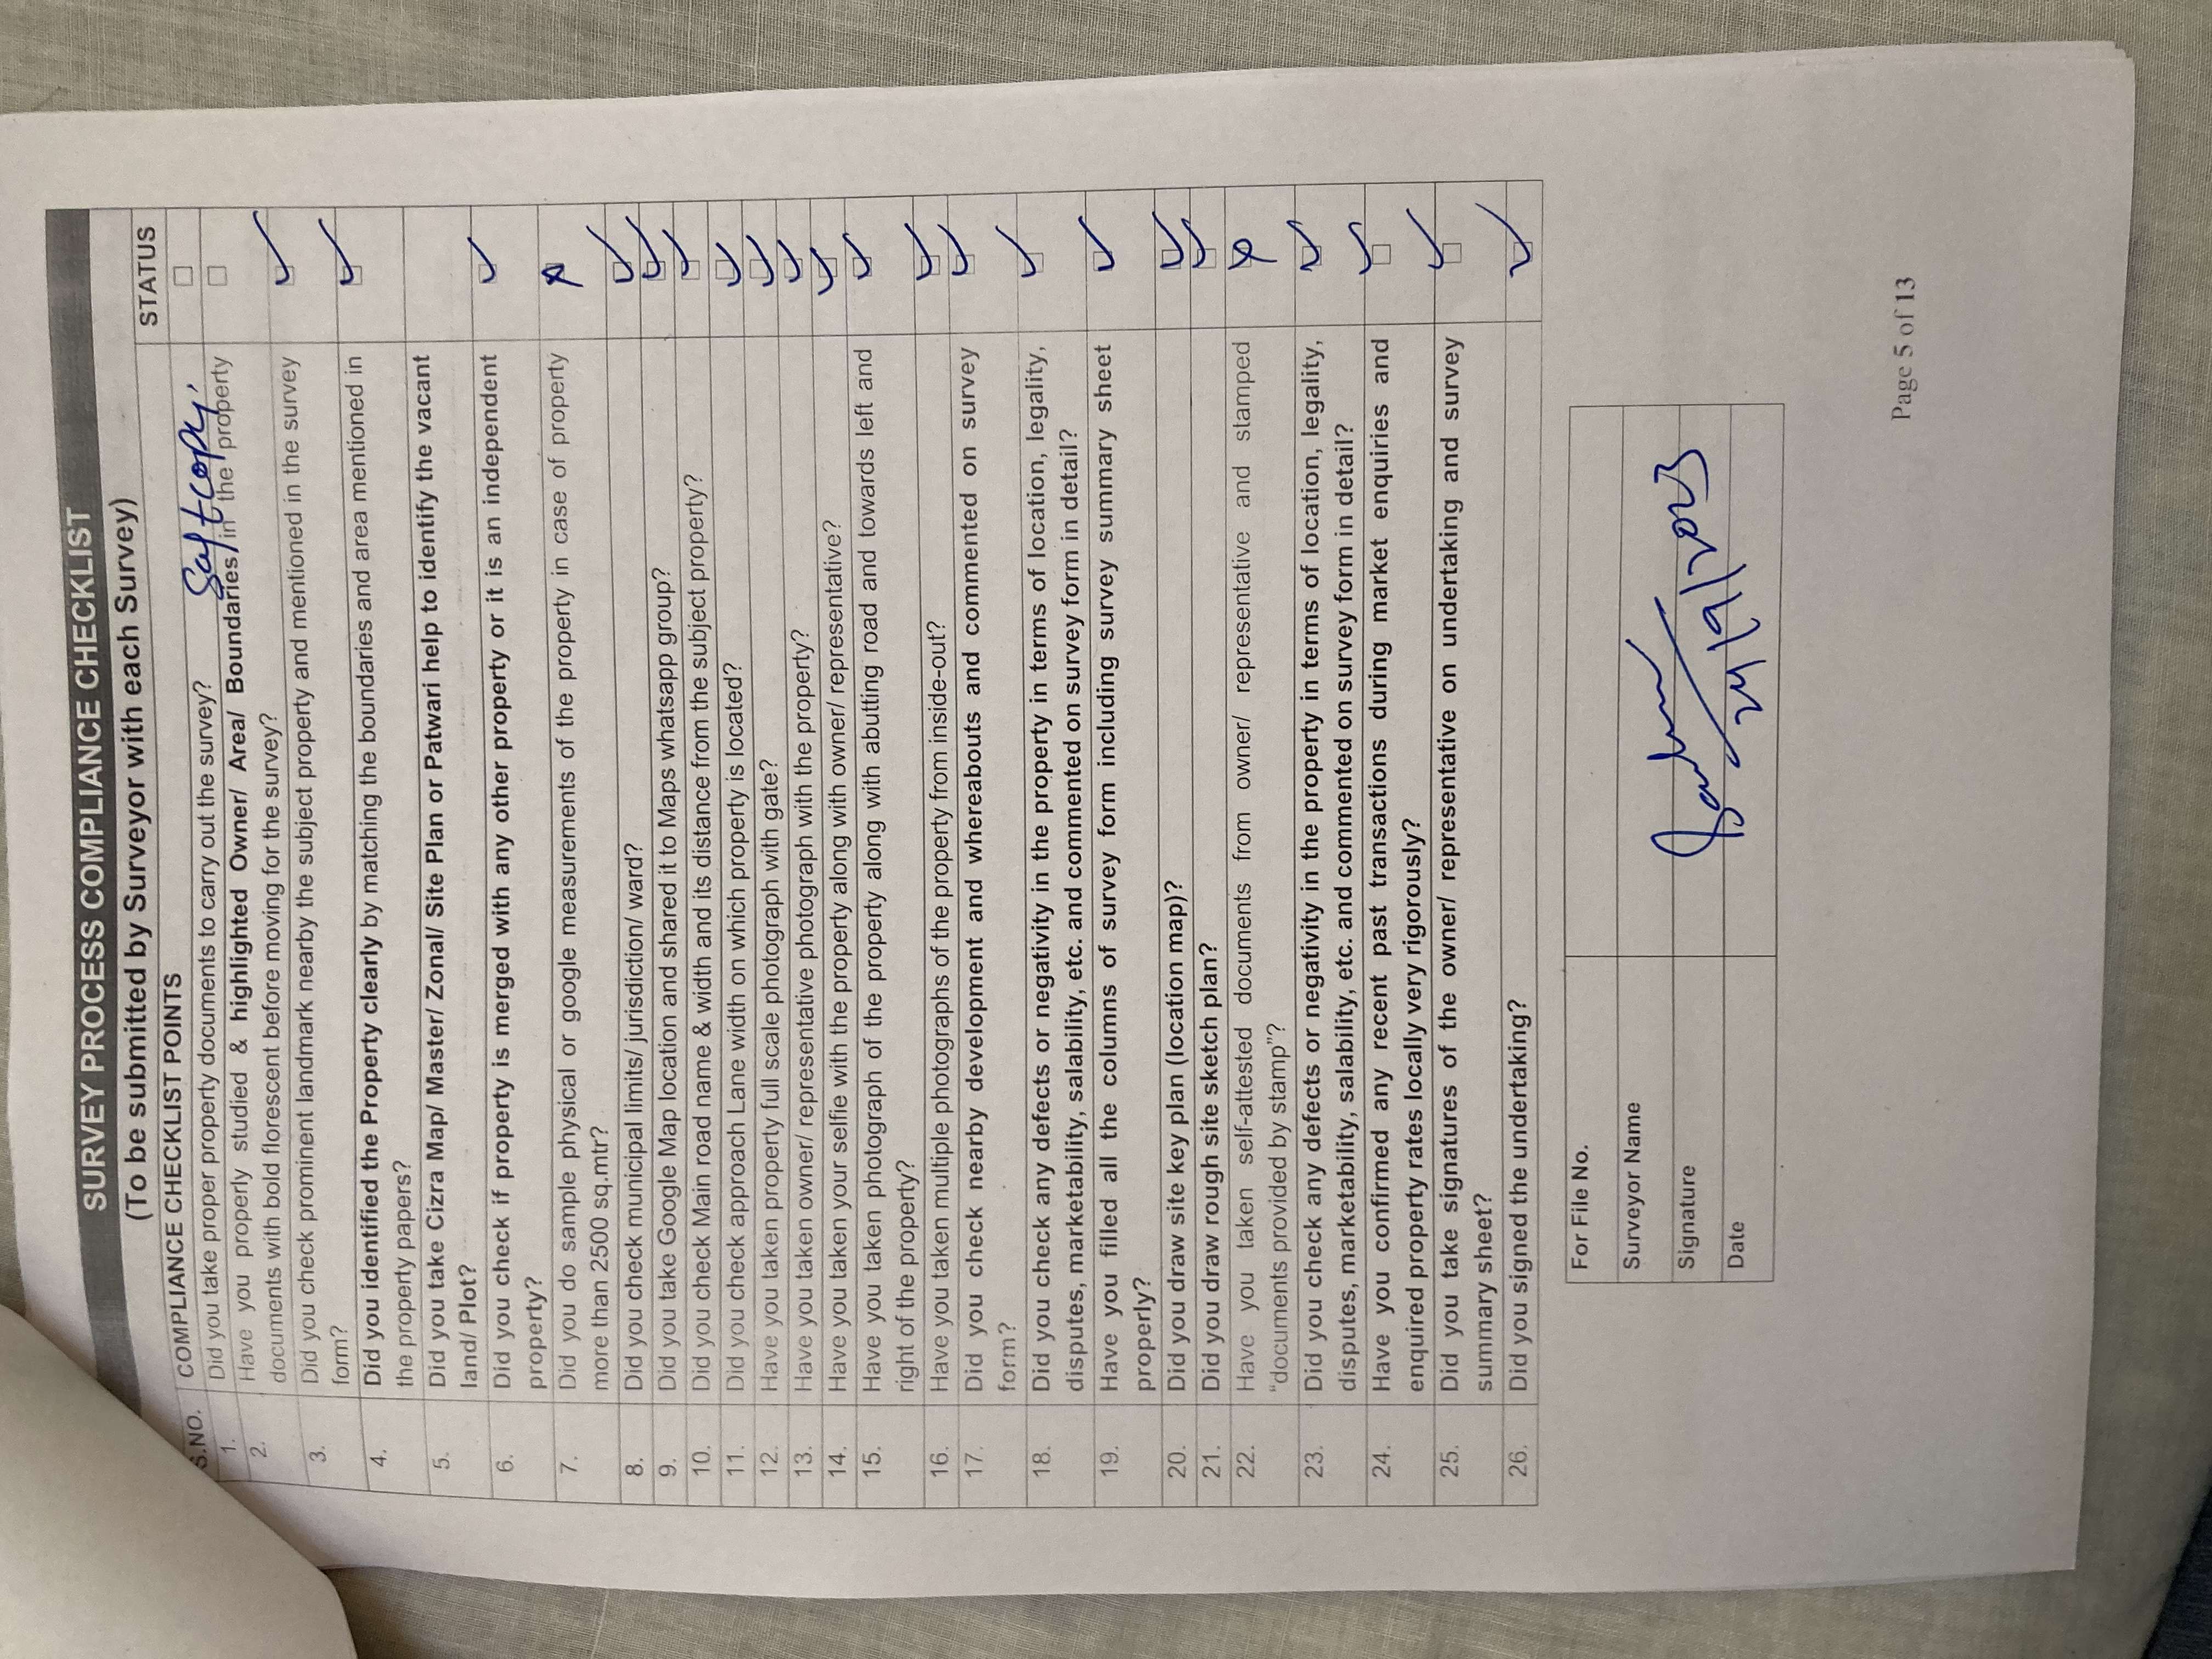 SURVEY PROCESS COMPLIANCE CHECKLIST
(To be submitted by Surveyor with each Survey)
S.NO. COMPLIANCE CHECKLIST POINTS STATUS
1. Did you take proper property documents to carry out the survey? Saftcopy, ☐
2. Have you properly studied & highlighted Owner/ Area/ Boundaries/ in the property ☐
documents with bold florescent before moving for the survey?
3. Did you check prominent landmark nearby the subject property and mentioned in the survey ✓
form?
4. Did you identified the Property clearly by matching the boundaries and area mentioned in ✓
the property papers?
5. Did you take Cizra Map/ Master/ Zonal/ Site Plan or Patwari help to identify the vacant
land/ Plot?
6. Did you check if property is merged with any other property or it is an independent ✓
property?
7. Did you do sample physical or google measurements of the property in case of property
more than 2500 sq.mtr?
8. Did you check municipal limits/ jurisdiction/ ward? ✓
9. Did you take Google Map location and shared it to Maps whatsapp group? ✓
10. Did you check Main road name & width and its distance from the subject property? ✓
11. Did you check approach Lane width on which property is located? ✓
12. Have you taken property full scale photograph with gate? ✓
13. Have you taken owner/ representative photograph with the property? ✓
14. Have you taken your selfie with the property along with owner/ representative? ✓
15. Have you taken photograph of the property along with abutting road and towards left and ✓
right of the property?
16. Have you taken multiple photographs of the property from inside-out? ✓
17. Did you check nearby development and whereabouts and commented on survey ✓
form?
18. Did you check any defects or negativity in the property in terms of location, legality, ✓
disputes, marketability, salability, etc. and commented on survey form in detail?
19. Have you filled all the columns of survey form including survey summary sheet ✓
properly?
20. Did you draw site key plan (location map)? ✓
21. Did you draw rough site sketch plan? ✓
22. Have you taken self-attested documents from owner/ representative and stamped
“documents provided by stamp”?
23. Did you check any defects or negativity in the property in terms of location, legality, ✓
disputes, marketability, salability, etc. and commented on survey form in detail?
24. Have you confirmed any recent past transactions during market enquiries and ✓
enquired property rates locally very rigorously?
25. Did you take signatures of the owner/ representative on undertaking and survey ✓
summary sheet?
26. Did you signed the undertaking? ✓
For File No.
Surveyor Name
Signature
Date 24/9/2023
Page 5 of 13